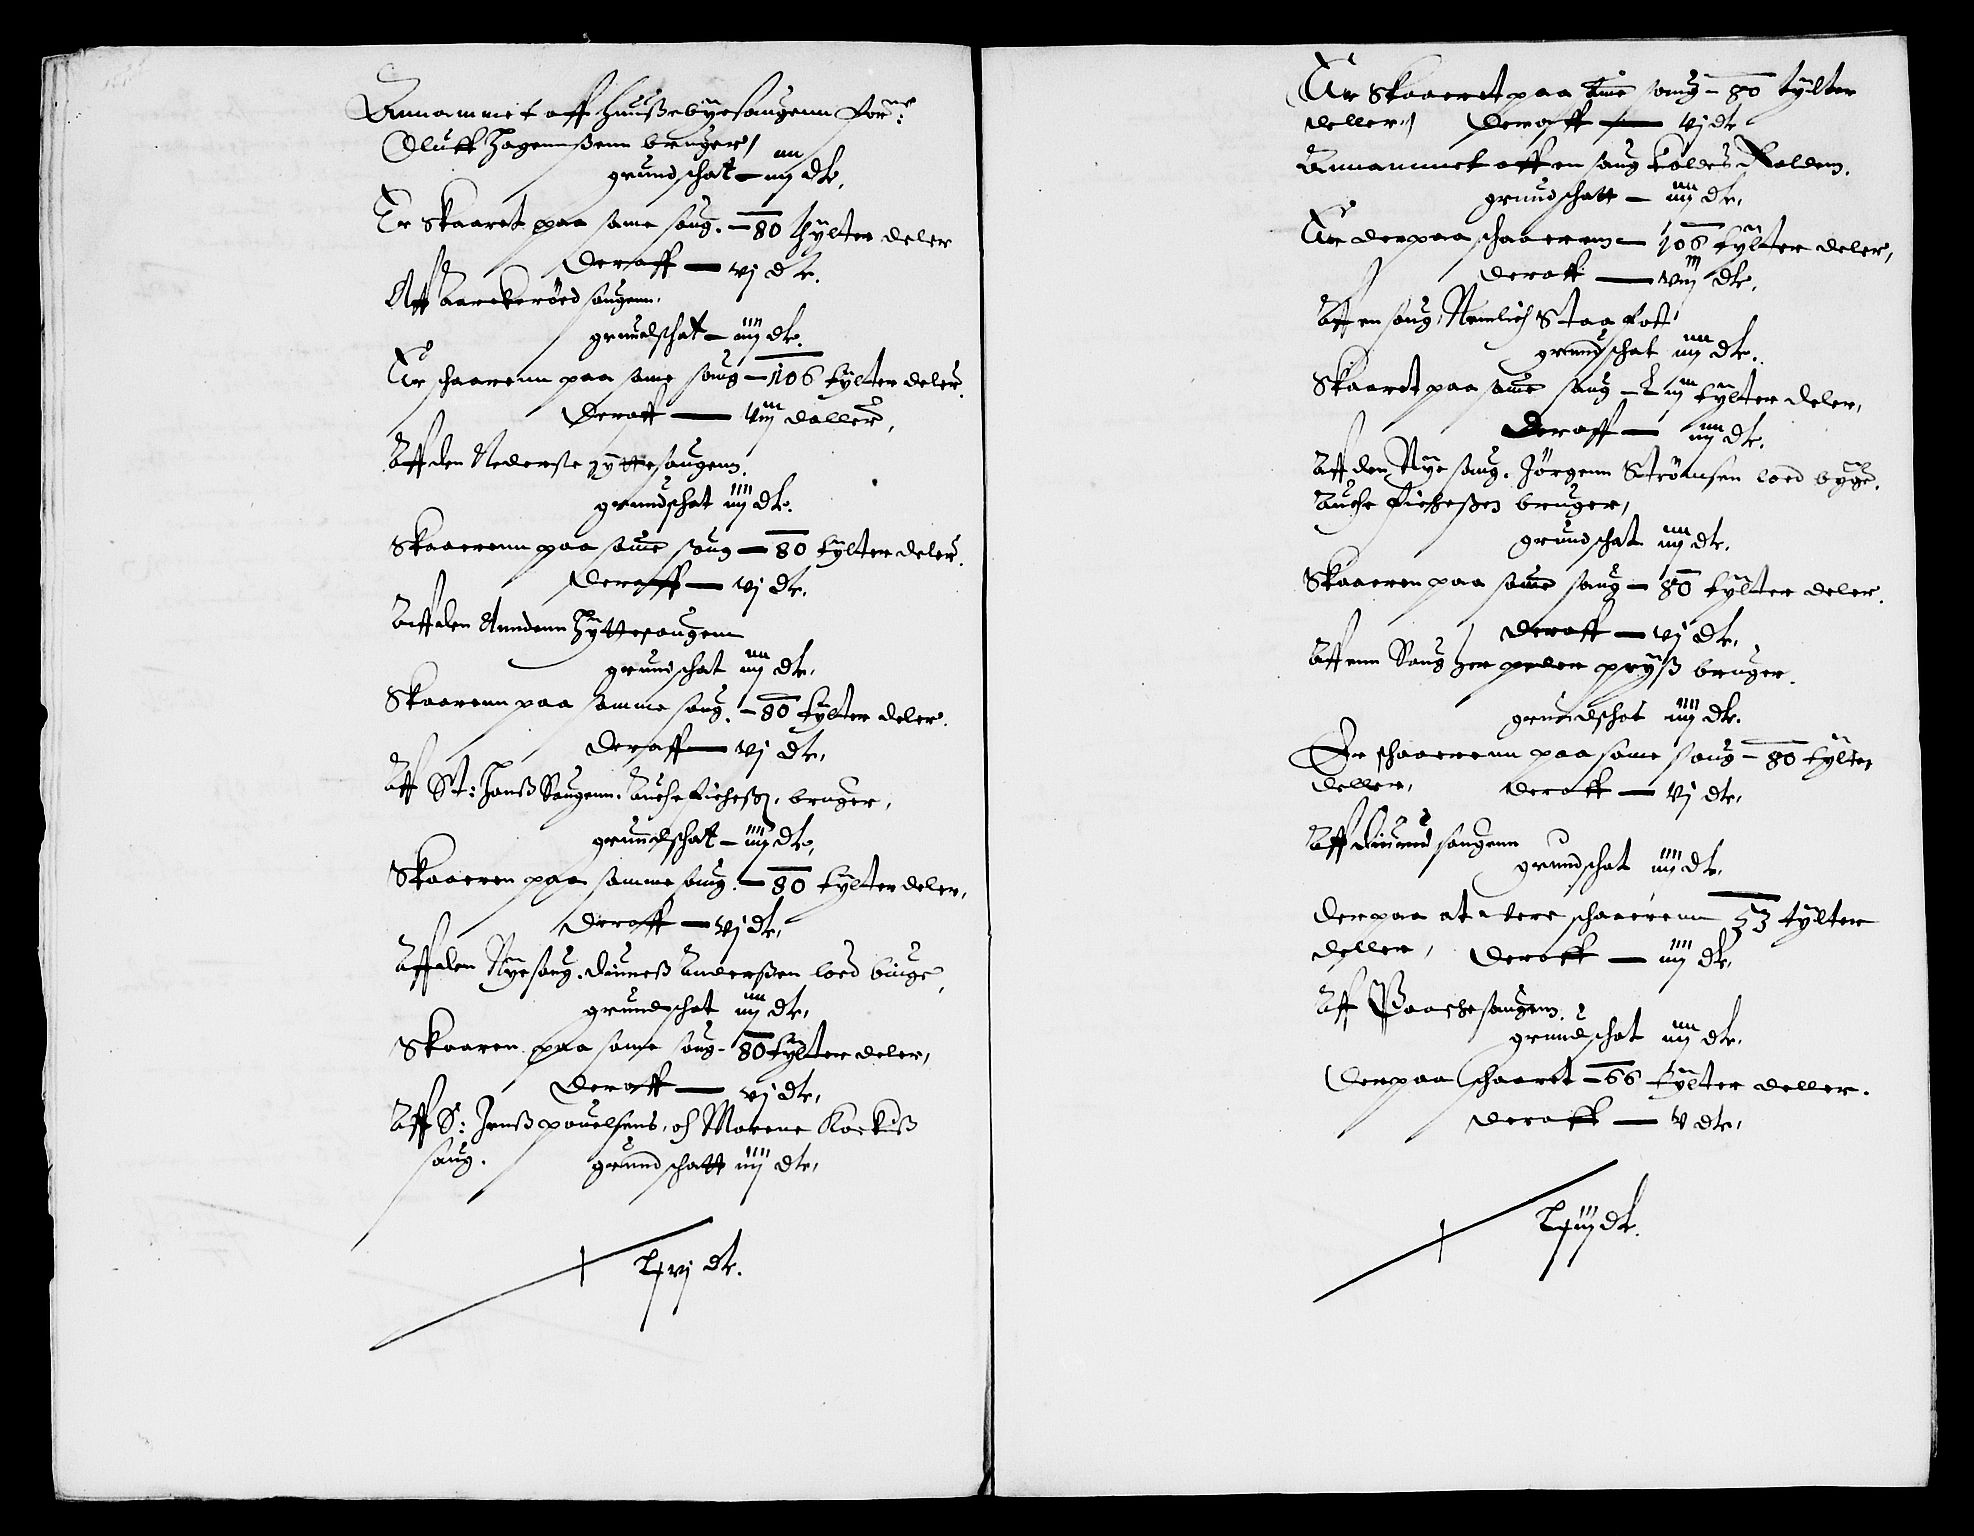 Annammet aff Hußebye saugenn for:ne
Oluff Hagennßenn bruger,
grundschat — iiij dlr.
Er Skaaret paa same saug. — 80 tylter deler
Deraff — vj dlr.
Aff Barckeröed saugenn.
grundschat — iiij dlr.
Er schaarenn paa same saug — 106 tylter deler.
Deraff — viij daller,
Aff den Nederste Hyttesaugenn.
grundschat iiij dlr.
Skaarenn paa same saug — 80 tylter deler.
Deraff — vj dlr.
Aff den Anndenn Hyttesaugenn
grundschat iiij dlr,
Skaarenn paa samme saug. — 80 tylter deler.
Deraff — vj dlr,
Aff St: Hanß Saugenn. bruger,
grundschat — iiij dlr,
Skaaren paa samme saug. — 80 tylter deler,
Deraff — vj dlr,
Aff den Nye saug. Anderßen loed büge,
grundschat iiij dlr,
Skaaren paa same saug - 80 tylter deler,
Deraff — vj dlr,
Aff S: Jenß pouelsens, oh Marene
saug. grundschatt iiij dlr,
Lxvj dlr.
Er Skaaret paa same saug — 80 tylter
deller, Deraff — vj dlr
Annammet aff en saug kaldes
grundschatt — iiij dlr,
Er derpaa schaarenn — 106 tylter deler,
deraff — viij dlr,
Aff en saug, Nemlich Staa fost
grundschat iiij dlr.
Skaaret paa same saug — L iij tylter deler,
Deraff — iiij dlr.
Aff den Nye saug. Jörgenn Strömsen loed byge.
bruger,
grundschat iiij dlr,
Skaaren paa same saug — 80 tylter deler.
Deraff — vj dlr,
Aff enn Saug Her peder pryß bruger.
grundschat iiij dlr.
Er schaarenn paa same saug — 80 tylter
deller, deraff — vj dlr,
Aff saugenn
grundschat iiij dlr.
Derpaa at were schaarenn 53 tylter
deller, Deraff — iiij dlr,
Aff saugenn.
grundschat iiij dlr.
Derpaa schaaret — 66 tylter deller.
Deraff — v dlr,
Lxiij dlr.